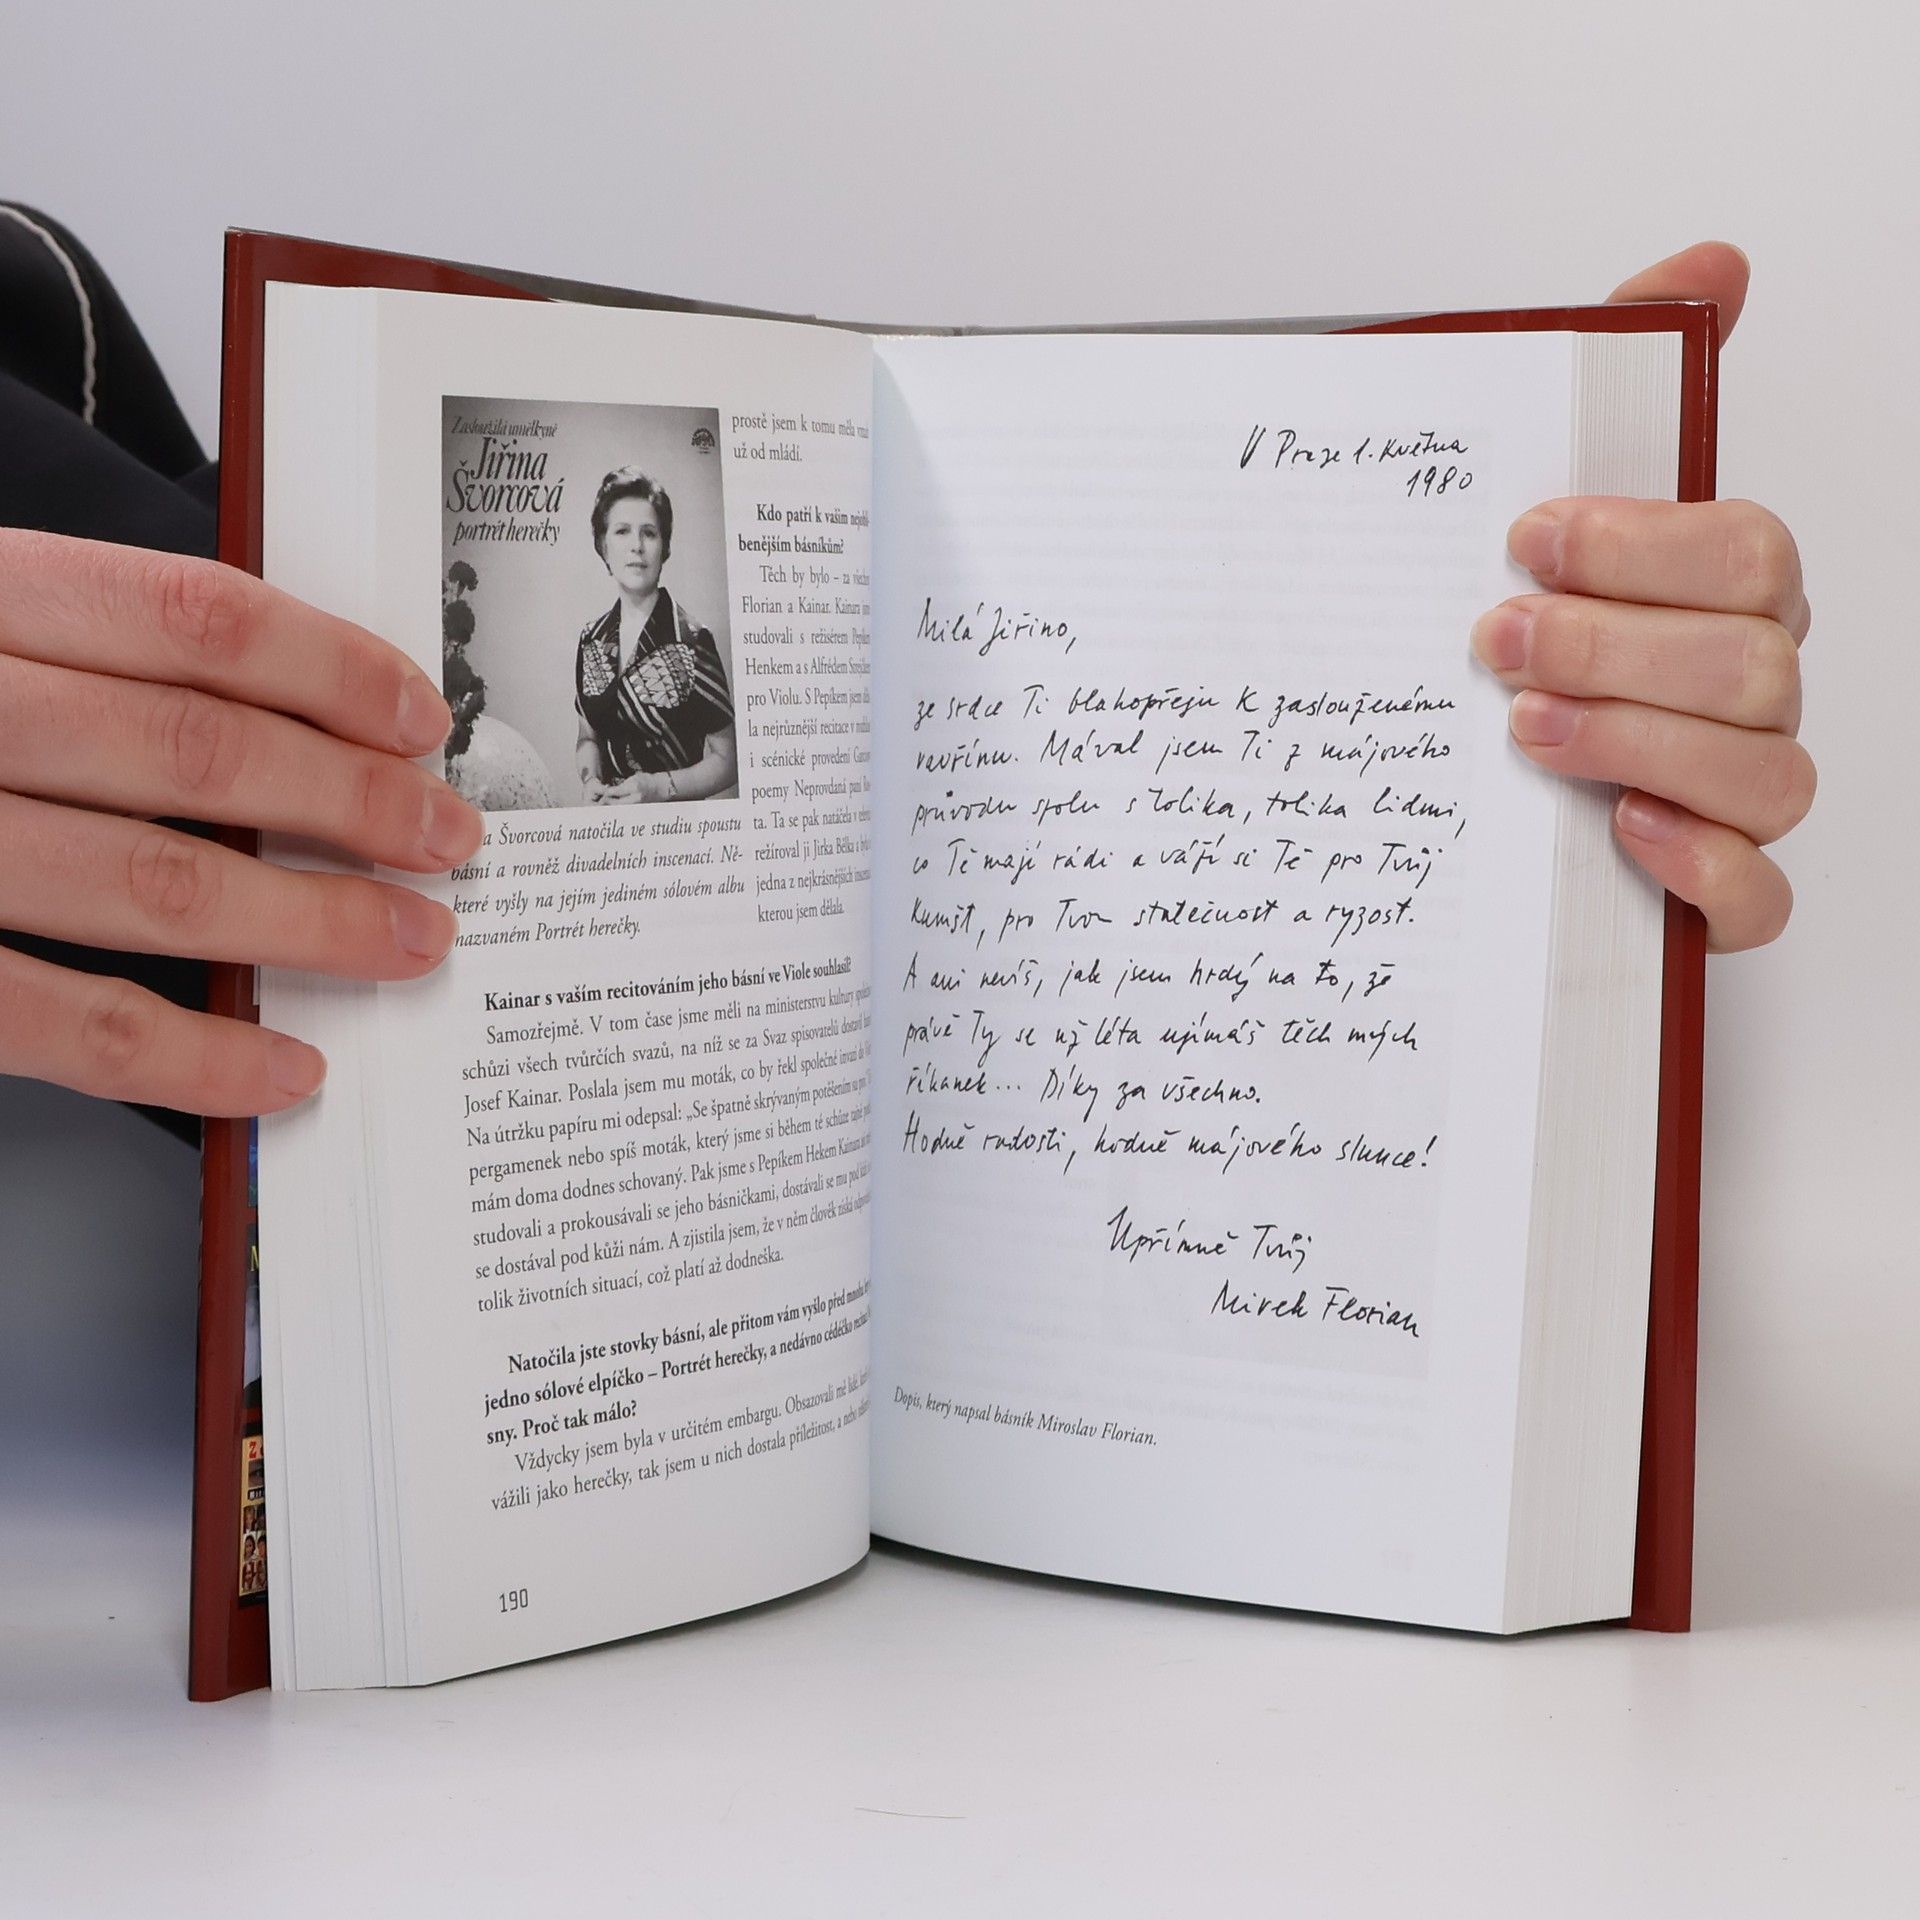 Zasloužilá umělkyně
Jiřina
Švorcová
portrét herečky
prostě jsem k tomu měla
už od mládí.
Kdo patří k vašim nejobl-
benějším básníkům?
Těch by bylo – za všechny
Florian a Kainar. Kainara
studovali s režisérem Pepíkem
Henkem a s Alfrédem
pro Violu. S Pepíkem jsem
la nejrůznější recitace v
i scénické provedení
poemy Neprovdaná paní
ta. Ta se pak natáčela v
režíroval ji Jirka Bělka a
jedna z nejkrásnějších
kterou jsem dělala.
a Švorcová natočila ve studiu spoustu
básní a rovněž divadelních inscenací. Ně-
které vyšly na jejím jediném sólovém albu
nazvaném Portrét herečky.
Kainar s vaším recitováním jeho básní ve Viole souhlasil?
Samozřejmě. V tom čase jsme měli na ministerstvu kultury
schůzi všech tvůrčích svazů, na níž se za Svaz spisovatelů dostavil
Josef Kainar. Poslala jsem mu moták, co by řekl společné invazi do
Na útržku papíru mi odepsal: „Se špatně skrývaným potěšením
pergamenek nebo spíš moták, který jsme si během té schůze
mám doma dodnes schovaný. Pak jsme s Pepíkem Hekem Kainara
studovali a prokousávali se jeho básničkami, dostávali se mu pod kůži
se dostával pod kůži nám. A zjistila jsem, že v něm člověk získá
tolik životních situací, což platí až dodneška.
Natočila jste stovky básní, ale přitom vám vyšlo před mnoha
jedno sólové elpíčko – Portrét herečky, a nedávno cédéčko
sny. Proč tak málo?
Vždycky jsem byla v určitém embargu. Obsazovali mě lidé,
vážili jako herečky, tak jsem u nich dostala příležitost, a nebo
190
V Praze 1. května
1980
Milá Jiřino,
ze srdce Ti blahopřeju k zaslouženému
vavřínu. Mával jsem Ti z májového
průvodu spolu s tolika, tolika lidmi,
co Tě mají rádi a váží si Tě pro Tvůj
kumšt, pro Tvou statečnost a ryzost.
A ani nevíš, jak jsem hrdý na to, že
právě Ty se už léta ujímáš těch mých
říkanek... Díky za všechno.
Hodně radosti, hodně májového slunce!
Upřímně Tvůj
Mirek Florian
Dopis, který napsal básník Miroslav Florian.